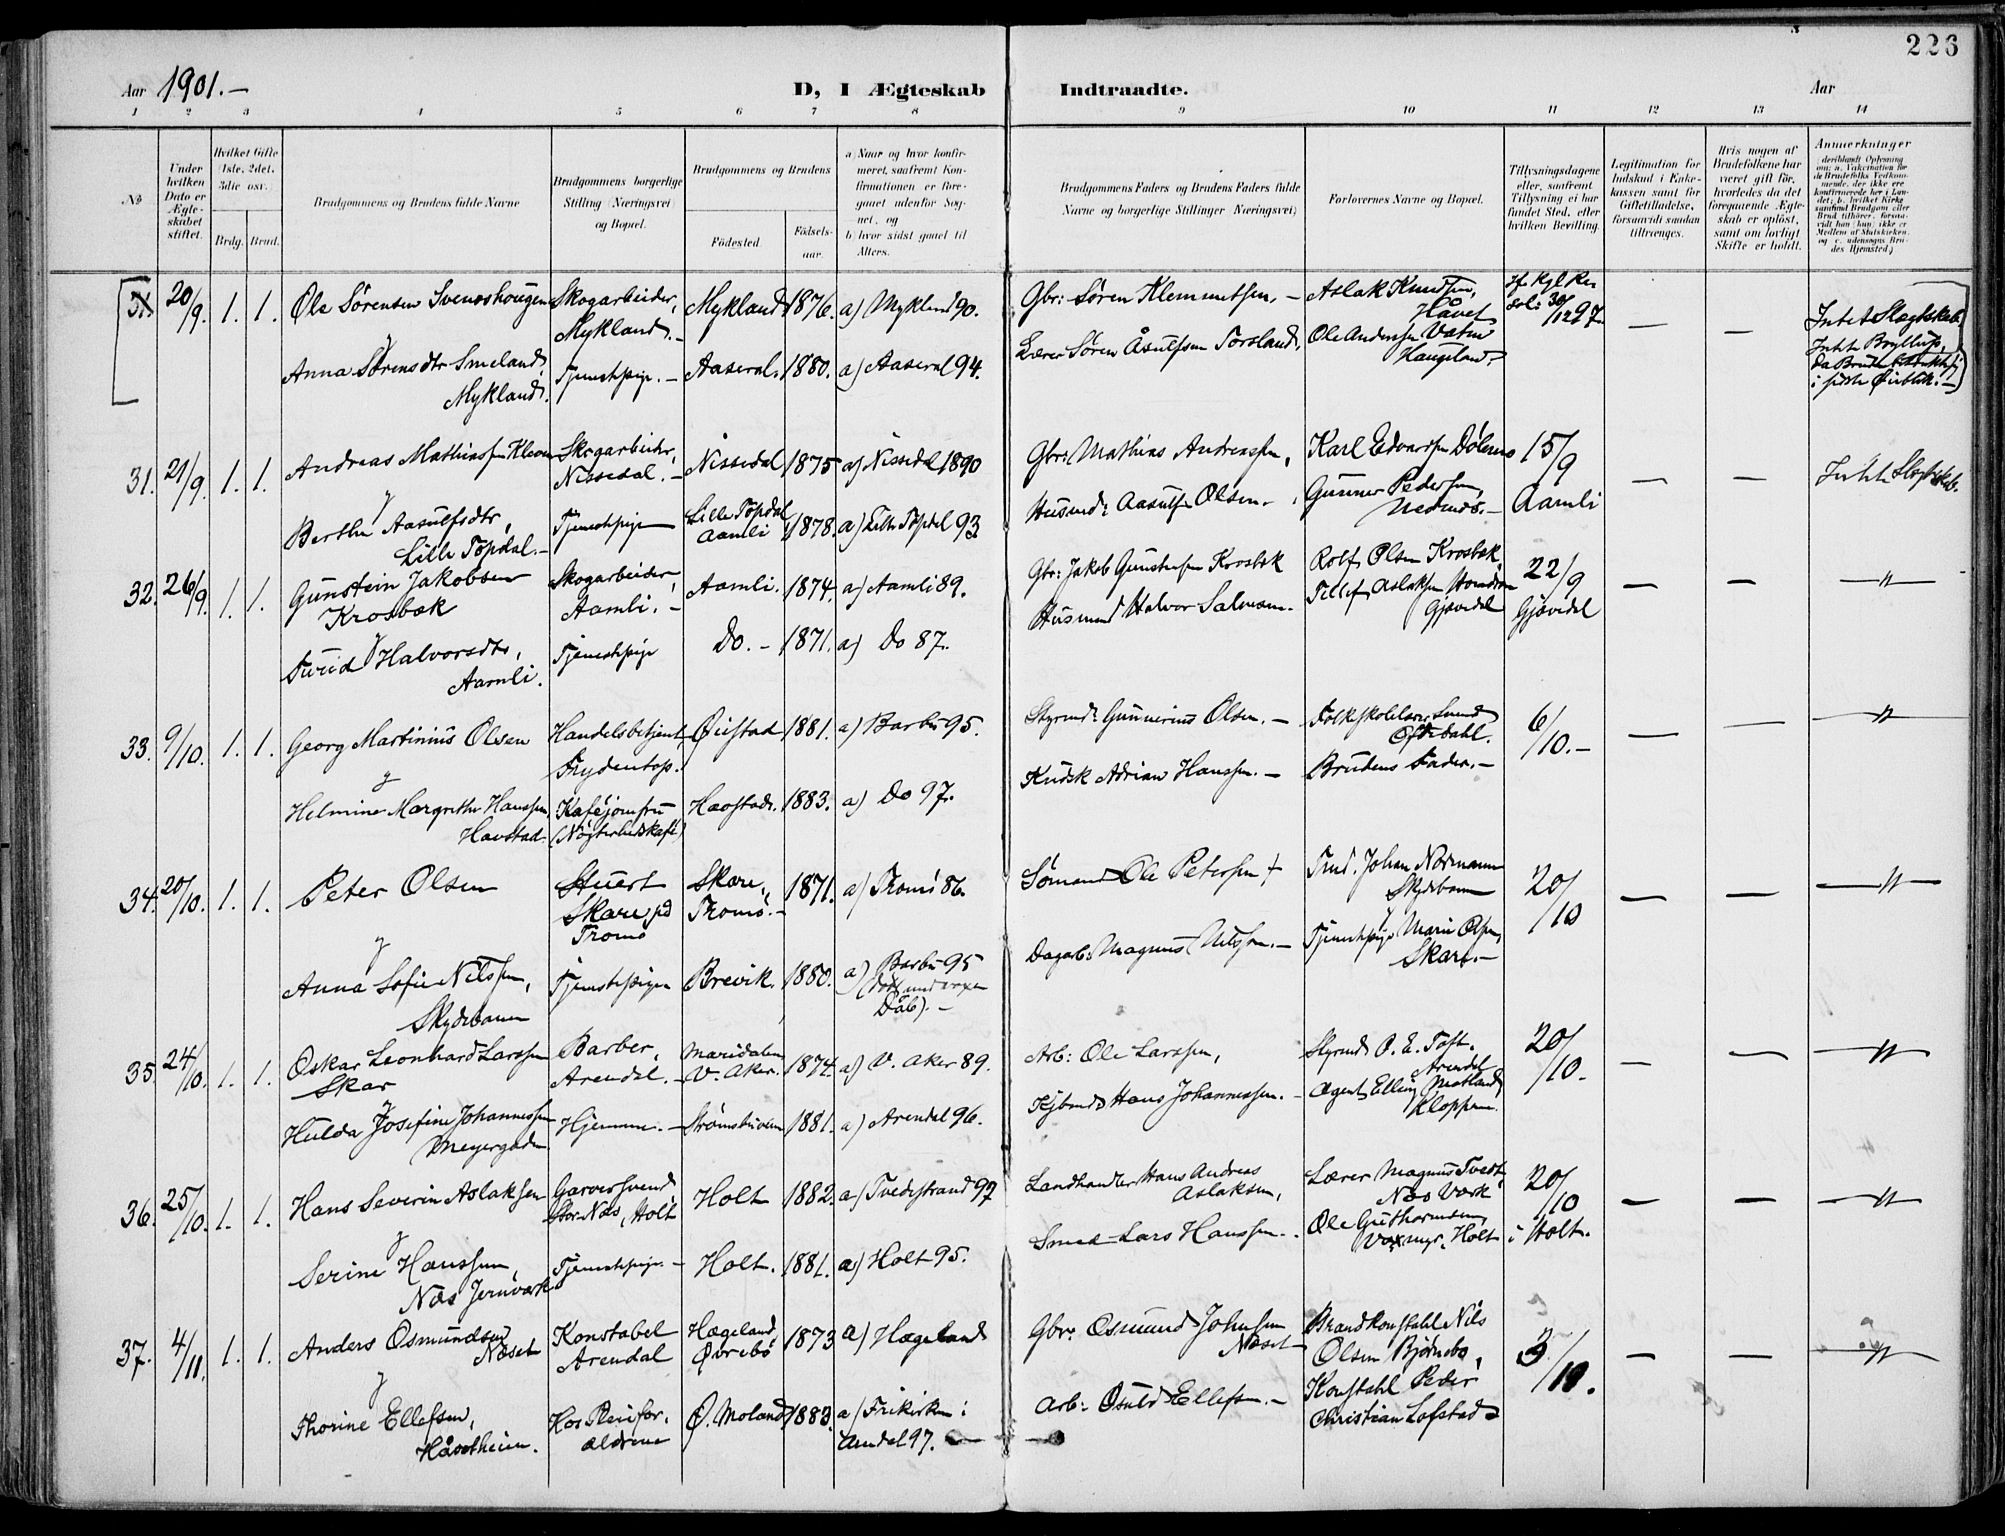 226
Aar 1901.-
D, I Ægteskab Indtraadte.
Aar
1 2 3 4 5 6 7 8 9 10 11 12 13 14
No
Under hvilken Dato er Ægteskabet stiftet.
Hvilket Gifte (1ste, 2det, 3die osv.)
Brdg. Brud.
Brudgommens og Brudens fulde Navne
Brudgommens borgerlige Stilling (Næringsvei) og Bopæl.
Brudgommens og Brudens
Födested. Födsels-aar.
a) Naar og hvor konfirmeret, saafremt Konfirmationen er foregaaet udenfor Sognet, og
b) hvor sidst gaaet til Alters.
Brudgommens Faders og Brudens Faders fulde Navne og borgerlige Stillinger (Næringsvei)
Forlovernes Navne og Bopæl.
Tillysningsdagene eller, saafremt Tillysning ei har fundet Sted, efter hvilken Bevilling.
Legitimation for Indskud i Enkekassen samt for Giftetilladelse, forsaavidt saadan tiltrænges.
Hvis nogen af Brudefolkene har været gift för, hvorledes da det foregaaende Ægteskab er oplöst, samt om lovligt Skifte er holdt.
Anmerkninger
(deriblandt Oplysning om: a. Vakcination for de Brudefolks Vedkommende, der ikke ere konfirmerede her i Landet; b. hvilket Kirkesamfund Brudgom eller Brud tilhörer, forsaavidt han (hun) ikke er Medlem af Statskirken, og c. udensogns Brudes Hjemsted.)
31. 20/9. 1. 1. Ole Sørensen Svenoshougen Skogarbeider, Mykland.- Mykland 1876. a) Mykland 90. Gbr: Søren Klemmetsen. - Aslak Knudsen, Håvet
30/12 97. — —
Intet Slægtskab
Intet Bryllup,
da Bruden
i sidste Øieblik.-
Anna Sørensdtr Smeland, Mykland. Tjenestepige. - Aaseral. 1880. a) Aaseral 94. Lærer Søren Åsulfsen Torsland. Ole Andersen Vatne Haugeland.
31. 21/9. 1. 1. Andreas Mathiassen Kleven Skogarbeider, Nissedal. - Nissedal 1875 a) Nissedal 1890 Gbr: Mathias Andreassen, Karl Edvardsen Dølemo 15/9 Aamli — — Intet Slægtskab.
g
Berthe Aasulfsdtr, Lille Topdal.- Tjenestepige Lille Topdal Aamli 1878. a) Lille Topdal 93 Husmd: Aasulf Olsen. Gunner Pedersen Nednes.-
32. 26/9. 1. 1. Gunstein Jakobsen Krosbæk Skogarbeider, Aamli. - Aamli. 1874. a) Aamli 89. Gbr: Jakob Gunsteinsen Krosbæk Rolf Olsen Krosbæk 22/9 Gjøvidal — — "
g
Turid Halvorsdtr, Aamli. Tjenestepige Do. - 1871. a) Do 87. Husmand Halvor Salvesen. Tellef Aslaksen Gjøvidal
33. 9/10. 1. 1. Georg Martinius Olsen Handelsbetjent, Frydentop. Øiestad 1881. a) Barbu 95. Styrmd: Gunnerius Olsen. - Folkeskolelærer Sunde 6/10.- — — "
g
Helmine Margrethe Hanssen, Havstad. Kaféjomfru (Nøgterhedskafé) Havstad. 1883. a) Do 97. Kudsk Adrian Hanssen. - Brudens Fader.-
34. 20/10. 1. 1. Peter Olsen Stuert Skare på Tromø Skare, Tromø.- 1871. a) Tromø 86. Sømand Ole Petersen + Tmd. Johan Normann Skydebanen 20/10 — — "
g
Anna Sofie Nilssen, Skydebanen Tjenestepige Brevik. 1880. a) Barbu 95 Dåb).- Dagarb: Magnus Nilssen.- Tjenestepige Marie Olsen, Skare.-
35. 24/10. 1. 1. Oskar Leonhard Larssen Skar Barber, Arendal. - Maridalen V. Aker. 1874. a) V. Aker 89. Arb: Ole Larssen, Styrmd O. E. Toft. Arendal 20/10. — — "
g
Hulda Josefine Johannessen Meyergaden Hjemme. - Strømsbuveien 1881. a) Arendal 96. Hans Johannessen. - Agent Elling Matland Kloppene.
36. 25/10. 1. 1. Hans Severin Aslaksen Garversvend Stor. Næs, Holt Holt 1882. a) Tvedestrand 97 Landhandler Hans Andreas Aslaksen, Lærer Magnus Tvedt, Næs Værk 20/10 i Holt. — — "
g
Serine Hanssen, Næs Jernværk Tjenestepige. - Holt. 1881. a) Holt 95. Smed Lars Hanssen. Ole Guthormsen, Holt
37. 4/11. 1. 1. Anders Osmundsen Næset Konstabel Arendal Hægeland Øvrebø 1873 a) Hægeland Gbr. Osmund Johnsen Næset Brandkonstabel Nils Olsen Bjørnebo, 3/10. — — "
g
Thorine Ellefsen, Håvetheien. Hos Pleiefor. ældrene Ø. Moland 1883. a) Frikirken i Arendal 97. Arb: Osuld Ellefsen. - Konstabel Peder Christian Lofstad